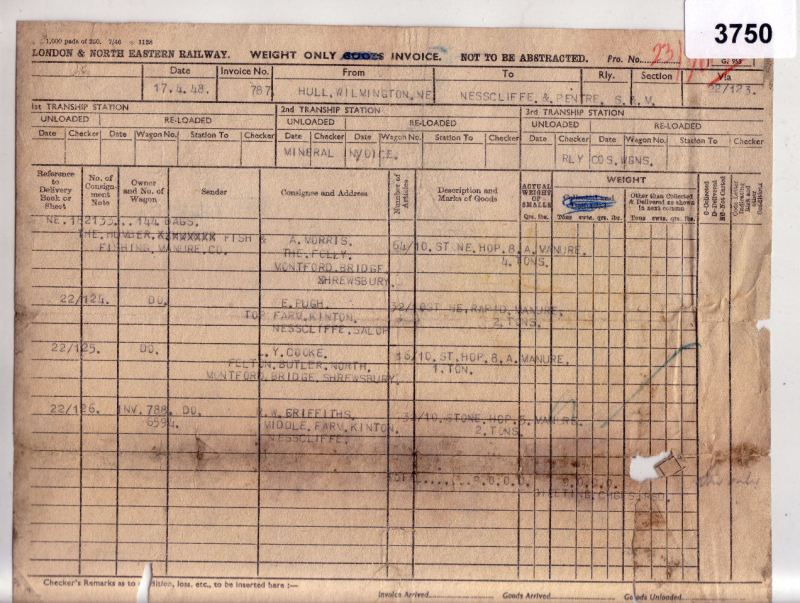 3750
1,000 pads of 250. 7/46 3128
LONDON & NORTH EASTERN RAILWAY. WEIGHT ONLY GOODS INVOICE. NOT TO BE ABSTRACTED. Pro. No.
Date Invoice No. From To Rly. Section Via
17.4.48. 787 HULL, WILMINGTON, NE NESSCLIFFE. & PENTRE. S.&.M. 22/123.
1st TRANSHIP STATION 2nd TRANSHIP STATION 3rd TRANSHIP STATION
UNLOADED RE-LOADED UNLOADED RE-LOADED UNLOADED RE-LOADED
Date Checker Date Wagon No. Station To Checker Date Checker Date Wagon No. Station To Checker Date Checker Date Wagon No. Station To Checker
MINERAL INVOICE. RLY COS. WGNS.
Reference to Delivery Book or Sheet
No. of Consignment Note
Owner and No. of Wagon
Sender
Consignee and Address
Number of Articles
Description and Marks of Goods
ACTUAL WEIGHT OF SMALLS
Qrs. lbs.
WEIGHT
Collected and
Tons cwts. qrs. lbs.
Other than Collected & Delivered as shown in next column
Tons cwts. qrs. lbs.
C-Collected
D-Delivered
NE. 182133. 144 BAGS.
THE. HUMBER. FISH & A. MORRIS. 64/10. STONE. HOP. 8. A. MANURE.
FISHING. MANURE. CO. THE. FOLLY. 4. TONS.
MONTFORD. BRIDGE.
SHREWSBURY.
22/124. DO. E. PUGH. 32/10 ST NE. RAPID. MANURE.
TOP FARM. KINTON. 2. TONS.
NESSCLIFFE. SALOP
22/125. DO. Y. COOKE. 16/10. ST. HOP. 8. A. MANURE.
FELTON. BUTLER. NORTH. 1. TON.
MONTFORD. BRIDGE. SHREWSBURY.
22/126. INV. 788. DO. W. GRIFFITHS. 32/10. STONE. HOP. 5. MANURE.
6594. MIDDLE. FARM. KINTON. 2. TONS.
NESSCLIFFE.
Checker's Remarks as to condition, loss, etc., to be inserted here :—
Invoice Arrived Goods Arrived Goods Unloaded